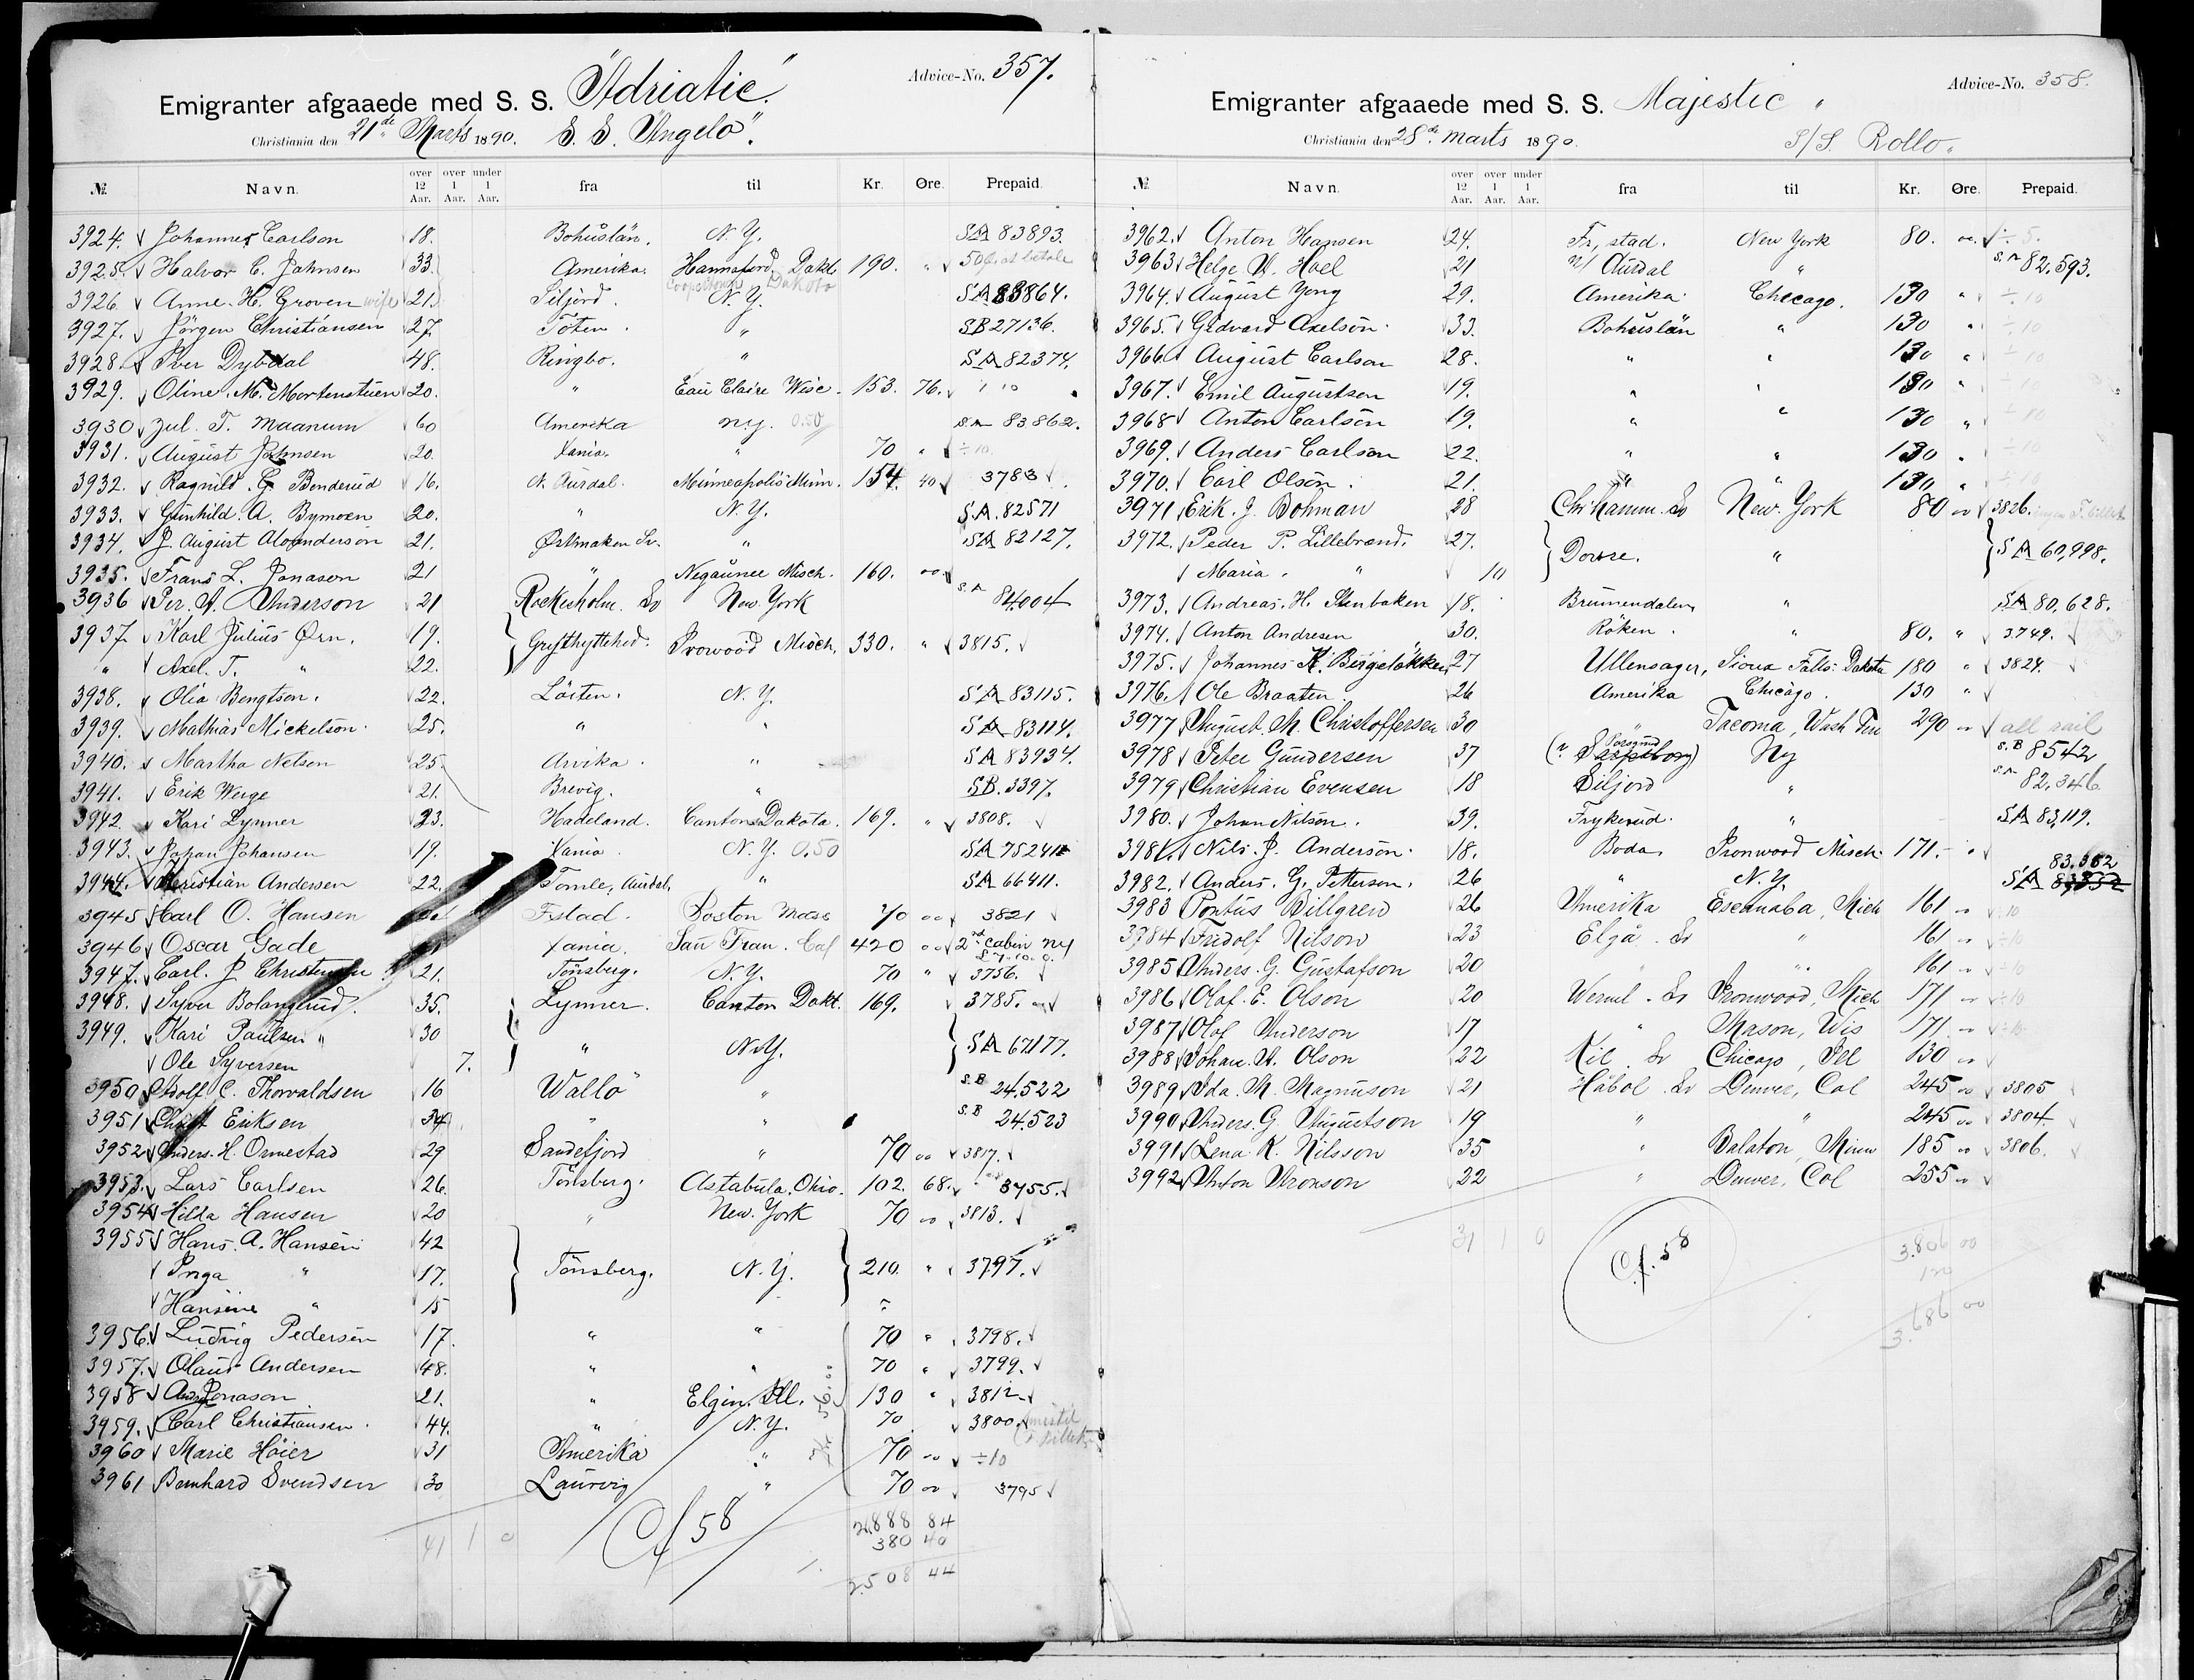 Advice-No. 357.
Emigranter afgaaede med S. S. "Adriatic".
Christiania den 21de Marts 1890. S. S. "Angelo".
№ Navn. over 12 Aar. over 1 Aar. under 1 Aar. fra til Kr. Øre. Prepaid.
3924. Johannes Carlson 18. Bohuslän. N.Y. SA 83893.
3925. Halvor C. Johnsen 33. Amerika. Hannaford, Dakt. 190. "
Cooperstown Dakota
3926 Anne. H. Groven wife 21. Siljord. N.Y. SA 83864.
3927. Jörgen Christiansen 27. Toten. " SB 27136.
3928. Iver Dybdal 48. Ringbo. " SA 82374.
3929. Oline. M. Mortenstuen 20. " Eau Claire Wisc. 153. 76. " "
3930 Jul. T. Maanum 60 Amerika N.Y. 0.50 S.A. 83862.
3931. August Johnsen 20. Xania. " 70 " ÷10.
3932. Ragnild. G. Benderud 16. N. Aurdal. Minneapolis Minn. 154. 40 3783
3933. Gunhild. A. Bymoen 20. " N.Y. S.A. 82571
3934. J. August Alexanderson 21. Östmaken Sv. " SA 82127.
3935. Frans L. Jonason 21 " Negaunee Misch. 160. 00
3936 Per. A. Anderson 21 Rockesholm. Sv New York S.A. 84004
3937. Karl Julius Örn. 19. Grythyttehed. Ironwood Misch. 330. " 3815.
" Axel. T. " 22.
3938. Olia Bengtson. 22. Löiten. N.Y. SA 83115.
3939. Mathias Mickelson. 25. " " SA 83114.
3940. Martha Nelsen 25. Arvika. " SA 83934.
3941. Erik Werge 21. Brevig. " SB. 3397.
3942. Kari Lynner 23. Hadeland. Canton Dakota. 169. " 3808.
3943. Johan Johansen 19. Xania. N.Y. 0.50 SA 75241
3944. Kristian Andersen 22. Tomle, Aurdal, " SA 66411.
3945 Carl O. Hansen Fstad. Boston Mass 70 00 3821
3946 Oscar Gade Xania. San Fran. Cal 420 00 2nd cabin NY
£ 7.10.0.
3947. Carl. J. Christensen 21. Tönsberg. N.Y. 70 " 3756.
3948. Syver Bolangrud. 35. Lynner. Canton Dakt. 169. 3785.
3949. Kari Paulsen " 30 " N.Y. SA 67177.
Ole Syversen 7.
3950 Adolf C. Thorvaldsen 16 Wallo " S.B 24.522
3951 Christ Eriksen 34 " " S.B 24.523
3952 Anders. H. Ormestad 29 Sandefjord " 70 00 3817.
3953. Lars Carlsen 26. Tönsberg. Astabula, Ohio. 102. 68. 3755.
3954 Hilda Hansen 20 " New York 70 00 3813.
3955 Hans. A. Hansen 42
Inga " 17. Tönsberg. N.Y. 210. " 3797.
Hansine " 15
3956. Ludvig Pedersen 17. " " 70 " 3798.
3957. Olaus Andersen 48. " " 70 " 3799.
3958 And. Jonason 21. " Elgin. Ill. 130 " 3812
3959. Carl Christiansen. 44. " N.Y. 70. 3800
3960 Marie Höier 31 Amerika " 70 00 ÷10
3961 Bernhard Svendsen 30 Laurvig " 70 00 3795
41 1 0 Cf 58 2,888 84
380 40
2508 44
Advice-No. 358.
Emigranter afgaaede med S. S. Majestic "
Christiania den 28de Marts 1890. S/S. Rollo.
№ Navn. over 12 Aar. over 1 Aar. under 1 Aar. fra til Kr. Øre. Prepaid.
3962. Anton Hansen 24. Fr, stad. New York 80. 00. ÷ 5.
3963 Helge A. Hoel 21 N/ Aurdal " S.A 82.593.
3964. August Yeng 29. Amerika. Chicago. 130 " ÷10
3965. Edvard Axelson. 33. Bohuslän " 130 " ÷10
3966. August Carlson 28. " " 130 " ÷10
3967. Emil Augustsen 19. " " 130 " ÷10
3968 Anton Carlson 19. " " 130 " ÷10
3969. Anders Carlson 22. " " 130 " ÷10
3970. Carl Olson. 21. " " 130 " ÷10
3971 Erik. J. Bohman 28 Chr. hamm. Sv New York 80 00 3826.
3972. Peder P. Lillebrand. 27. Dovre. " SA 60,998.
Maria. " 10
3973. Andreas. H. Stenbaken 18. Brumendalen " SA 80,628.
3974. Anton Andresen 30. Röken. " 80. " 3749.
3975. Johannes K. Bergelökken 27 Ullensager, Sioux Falls. Dakota 180 " 3824.
3976. Ole Braaten. 26 Amerika Chicago. 130 "
3977 August. M. Christoffersen 30 " Tacoma, Wash Terr 290 00 all rail
3978 Peter Gundersen 37 Porsgrund Ny S.B 8542
3979 Christian Evensen 18 Siljord " S.A 82.346
3980. Johan Nilson. 39. Frykerud. " SA 83,119.
3981. Nils. J. Anderson. 18. Boda. Ironwood Misch. 171. "
3982. Anders. G. Petterson. 26 " N.Y. SA 83,332
3983 Pontus Billgren 26 Amerika Escanaba, Mich 161 00 ÷10
3984 Fridolf Nilson 23 Elgå. Sv " 161 00 ÷10
3985 Anders. G. Gustafson 20 " 161 00 ÷10
3986 Olof. E. Olson 20 Werml. Sv Ironwood, Mich 171 00 ÷10
3987 Olof Anderson 17 " Mason, Wis 171 00 ÷10
3988 Johan. A. Olson 22 Kil. Sv Chicago, Ill 130 00
3989 Ida. M. Magnuson 21 Håbol. Sv Denver, Col 245 00 3805
3990 Anders. G. Augustson 19 " " 245 00 3804
3991 Lena K. Nilsson 35 " Balaton, Minn 185 00 3806.
3992 Anton Aronson 22 " Denver, Col 255 00
31 1 0 Cf. 58 3.806 00
120
3.686 00